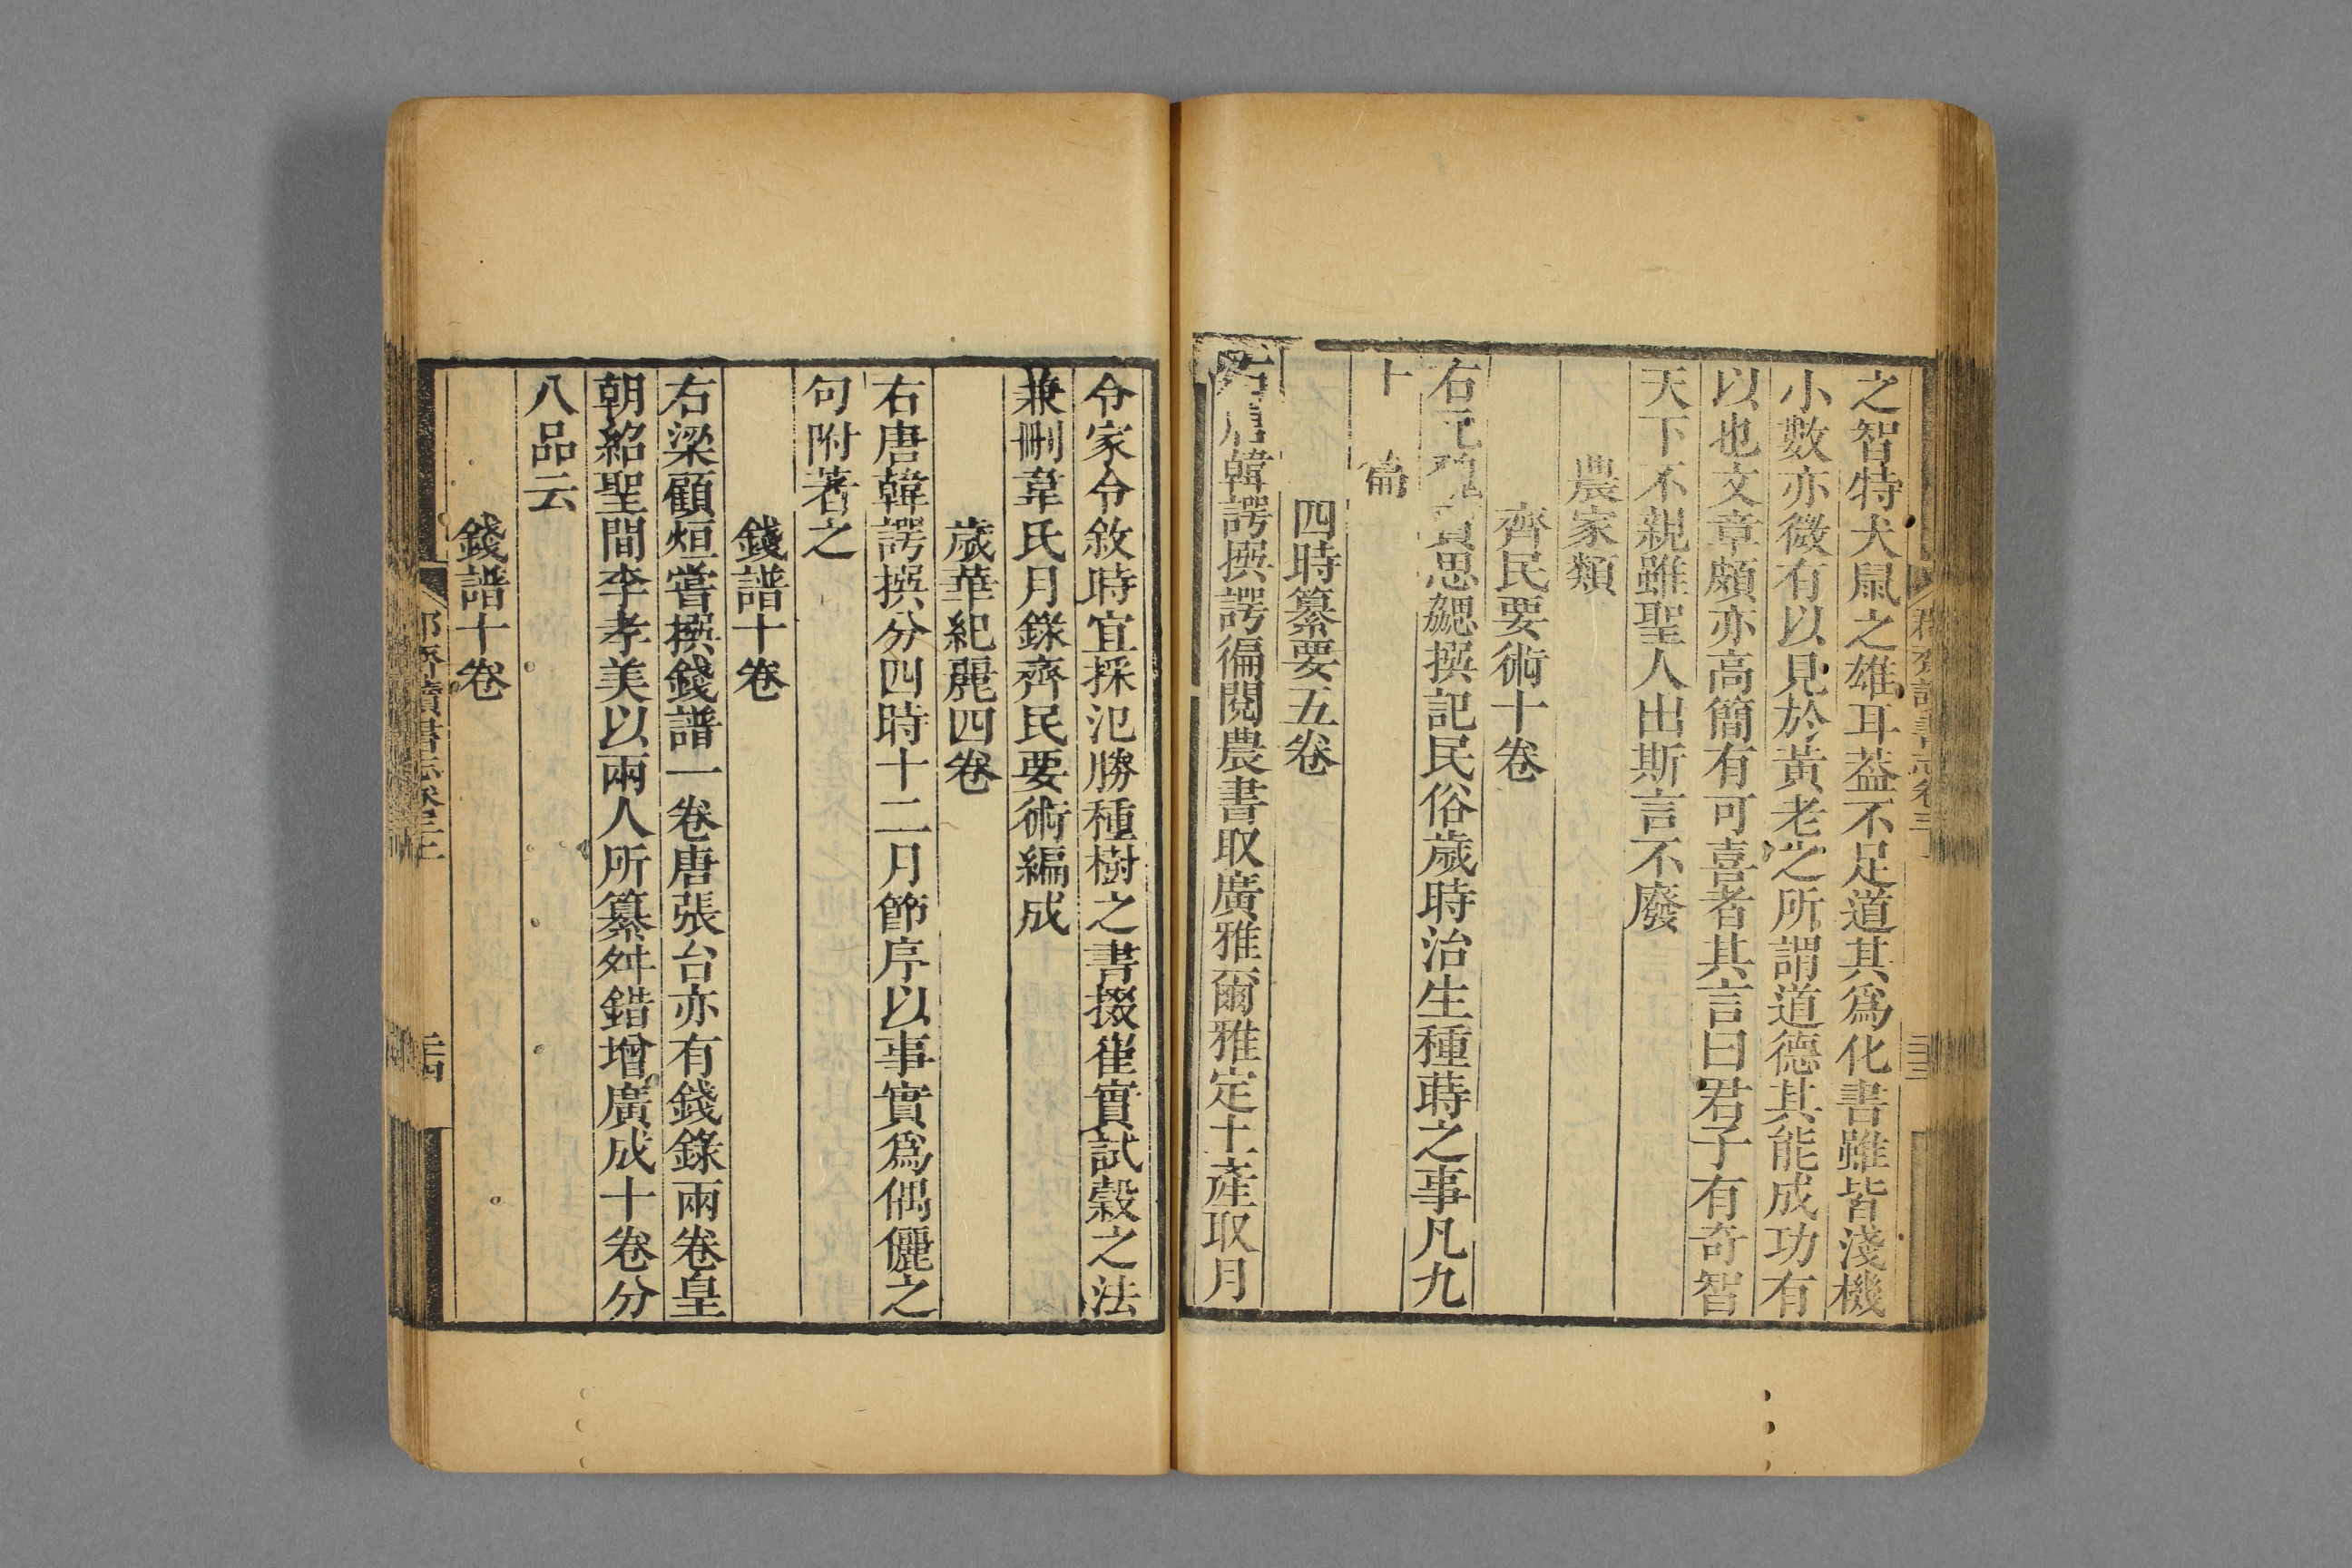 之智特犬鼠之雄耳葢不足道其爲化書雖皆淺機
小數亦微有以見於黃老之所謂道德其能成功有
以也文章頗亦高簡有可喜者其言曰君子有奇智
天下不親雖聖人出斯言不廢
農家類
齊民要術十卷
右元魏賈思勰撰記民俗歲時治生種蒔之事凡九
十
四時纂要五卷
右唐韓諤撰諤徧閱農書取廣雅爾雅定土產取月
令家令敘時宜採氾勝種樹之書掇崔寔試穀之法
兼刪韋氏月錄齊民要術編成
歲華紀麗四卷
右唐韓諤撰分四時十二月節序以事實爲偶儷之
句附著之
錢譜十卷
右梁顧烜嘗撰錢譜一卷唐張台亦有錢錄兩卷皇
朝紹聖間李孝美以兩人所纂舛錯增廣成十卷分
八品云
錢譜十卷